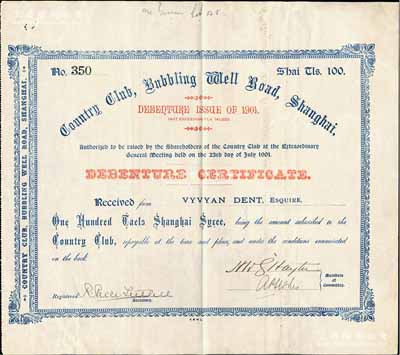 No. 350
Shai Tls. 100.
Country Club, Bubbling Well Road, Shanghai.
DEBENTURE ISSUE OF 1901.
Authorized to be raised by the Shareholders of the Country Club at the Extraordinary
General Meeting held on the 23rd day of July 1901.
DEBENTURE CERTIFICATE.
Received from VYVYAN DENT, ESQUIRE,
One Hundred Taels Shanghai Sycee, being the amount subscribed to the
Country Club, repayable at the time and place, and under the conditions enumerated
on the back.
Members
of
Committee.
Registered
Secretary.
COUNTRY CLUB, BUBBLING WELL ROAD, SHANGHAI.